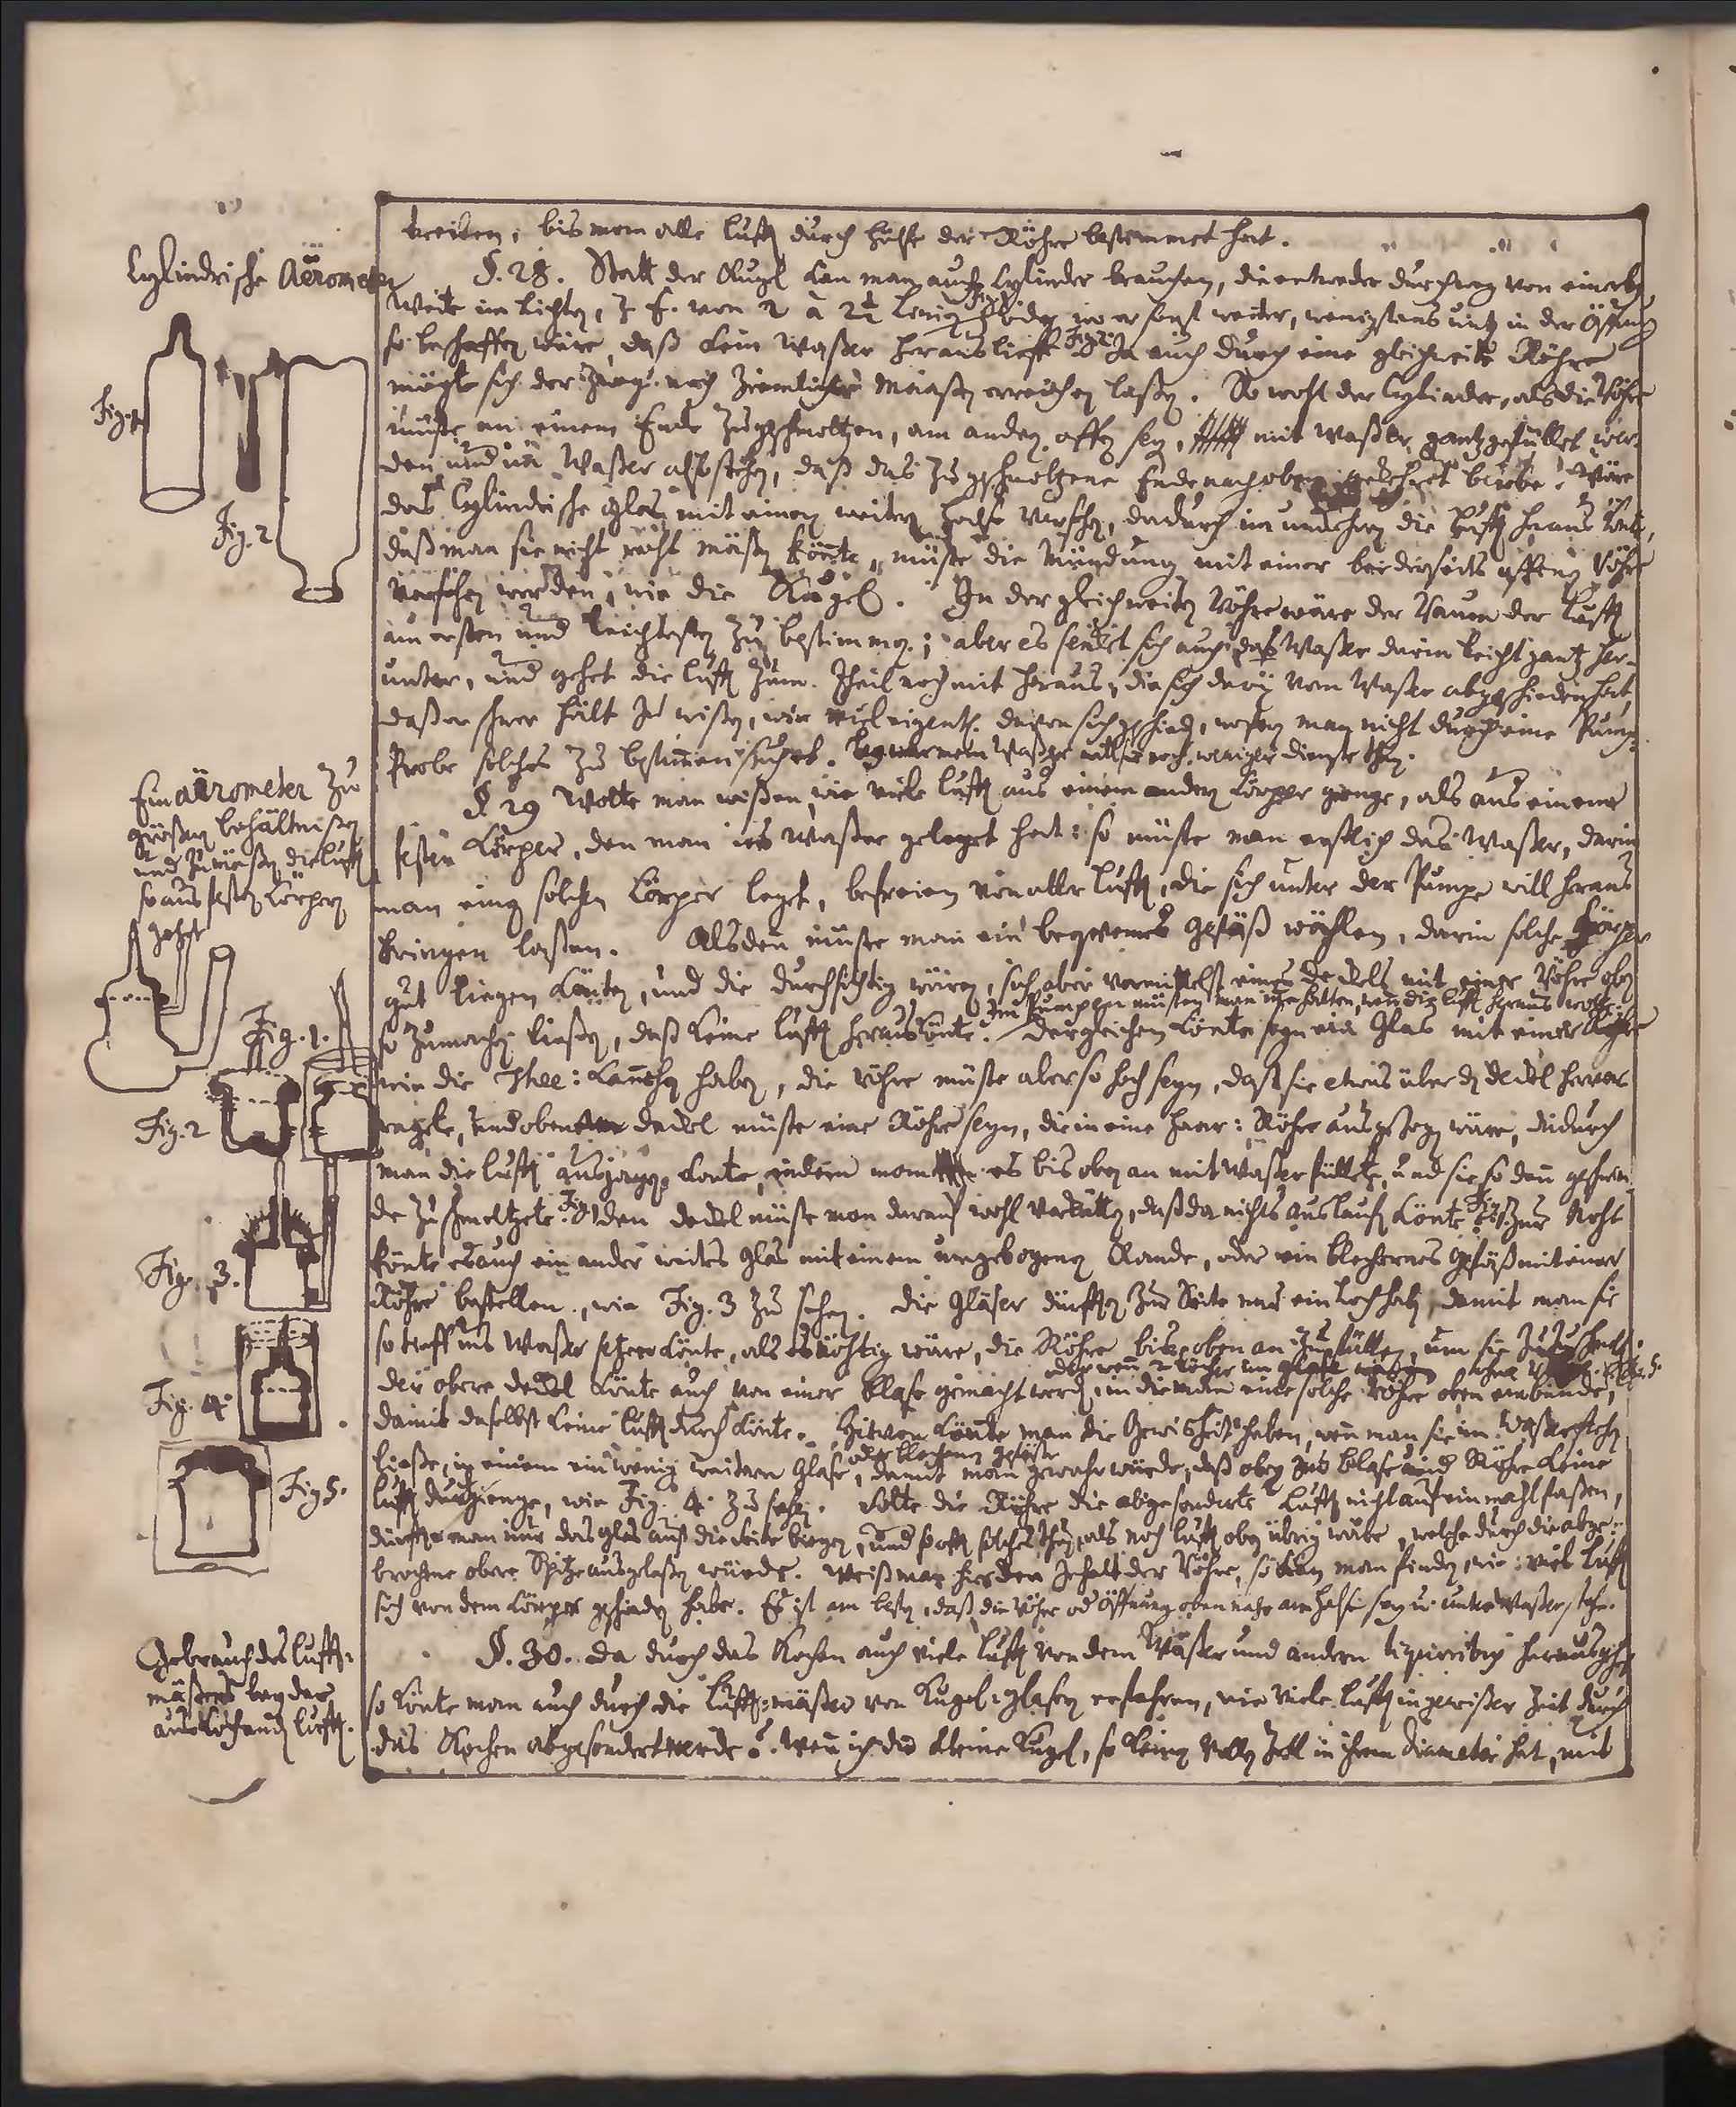 treiben, bis man alle lufft durch hülfe der Röhre bestimmet hat.
Cylindrische Aërometer
§. 28. Statt der Kugel kan man auch Cylinder brauchen, die entweder durchweg von einerley
Weite im Lichten, z. E. von 2 à 2½ Linien Fig. 1. oder sonst weiter, wenigstens und in der Öffnung
so beschaffen wäre, daß kein Waßer herausliefe Fig. 2. Ja auch durch eine gleichweite Röhre
mögte sich der Zweg noch Ziemlicher Maaßen erreichen laßen. So wohl der Cylinder, als die Röhre
Fig. 1
müste an einem Ende zugeschmoltzen, am anden offen seyn, mit Waßer gantz gefüllet wer-
den und im Waßer also stehen, daß das zugeschmoltzene Ende nach oben gekehret bliebe. Wäre
das Cylindrische glas mit einem weiten Halse versehen, dadurch im umkehren die lufft heraus könte,
Fig. 2
daß man sie nicht recht mäßen könte, müste die Mündung mit einer beiderseits offenen Röhre
versehen werden, wie die Kugel. In der gleichweiten Röhre wäre der Raum der Lufft
am ersten und leichtesten zu bestimmen; aber es senket sich auch das Waßer darin leicht gantz her-
unter, und gehet die lufft zum Theil noch mit heraus, die sich darin vom Waßer abgeschieden hat,
daß er schwer hält zu wißen, wie viel eigentl. davon sich geschieden, wofern man nicht durch eine Pump-
Probe solches zu bestimmen suchet. Bey warmem Waßer will sie noch weniger dienste thun.
Ein aërometer zu
größern behältnißen
und zu mäßen die lufft
so aus festen Cörpern
gehet
§ 29 Wolte man wißen, wie viele lufft aus einem anden Cörper gienge, als aus einem
festen Cörper, den man ins Waßer geleget hat: so müste man erstlich das Waßer, darin
man einen solchen Cörper leget, befreien von aller lufft, die sich unter der Pumpe will heraus
bringen laßen. Alsden müste man ein beqvemes Gefäß wählen, darin solche Cörper
gut liegen könten, und die durchsichtig wären, sich aber vermittelst eines deckels mit einer Röhre oben
Im Pumpen müsten man inne halten, wen die lufft heraus wolte
so zumachen ließen, daß keine lufft heraus könte. Dergleichen könte seyn ein Glas mit einer Röhre
Fig. 1.
wie die Thee: Kannchen haben, die Röhre müste aber so hoch seyn, daß sie etwas über den deckel hervor
Fig. 2
ragete, und oben am deckel müste eine Röhre seyn, die in eine Haar: Röhre ausgezogen wäre, dadurch
man die lufft ausjagen konte, indem man es bis oben an mit Waßer füllete, und sie so dan geschwin
de zuschmeltzete. Fig. 1 den deckel müste man darauf wohl verkütten, daß da nichts auslaufen könte. Zur Noht
Fig. 3.
könte es auch ein ander weites glas mit einem umgebogenen Rande, oder ein blechernes Gefäß mit einer
Röhre bestellen, wie Fig. 3 zu sehen. Die Gläser dürfften zur Seite nur ein Loch haben, damit man sie
so tieff ins Waßer setzen könte, als es nöhtig wäre, die Röhre bis oben an zu füllen, um sie zuzuschmeltzen.
Fig. 4.
der obere deckel könte auch von einer blase gemacht werden, in die man eine solche Röhre oben einbünde,
damit daselbst keine lufft durch könte. Hievon könte man die Gewisheit haben, wen man sie im Waßer stehen
oder blechernen gefäße
ließe, in einem ein wenig weitern Glase, damit man gewahr würde, daß oben zur blase und Röhre keine
Fig 5.
lufft durchgienge, wie Fig. 4. zu sehen. Solte die Röhre die abgesonderte lufft nicht auf einmahl faßen,
dürffte man nur das glas auf die seite biegen, und so offt solches thun, als noch lufft oben übrig wäre, welche durch die abge-
brochene obere Spitze ausgelaßen würde. Weiß man hier den Inhalt der Röhre, so kan man finden, wie viel lufft
sich von dem Cörper geschieden habe. Es ist am besten, daß die Röhre od Öffnung oben nahe am halse sey u. unter Waßer stehe.
Gebrauch des lufft-
mäßers bey der
auskochenden lufft.
§. 30. Da durch das Kochen auch viele lufft von dem Waßer und andern liquoribus herausgehet
so könte man auch durch die lufft-mäßer von Kugel-glasen erfahren, wie viele lufft in gewißer Zeit durch
das Kochen abgesondert werde. Wen ich die kleine Kugel, so keinen vollen Zoll in ihrem diameter hat, mit